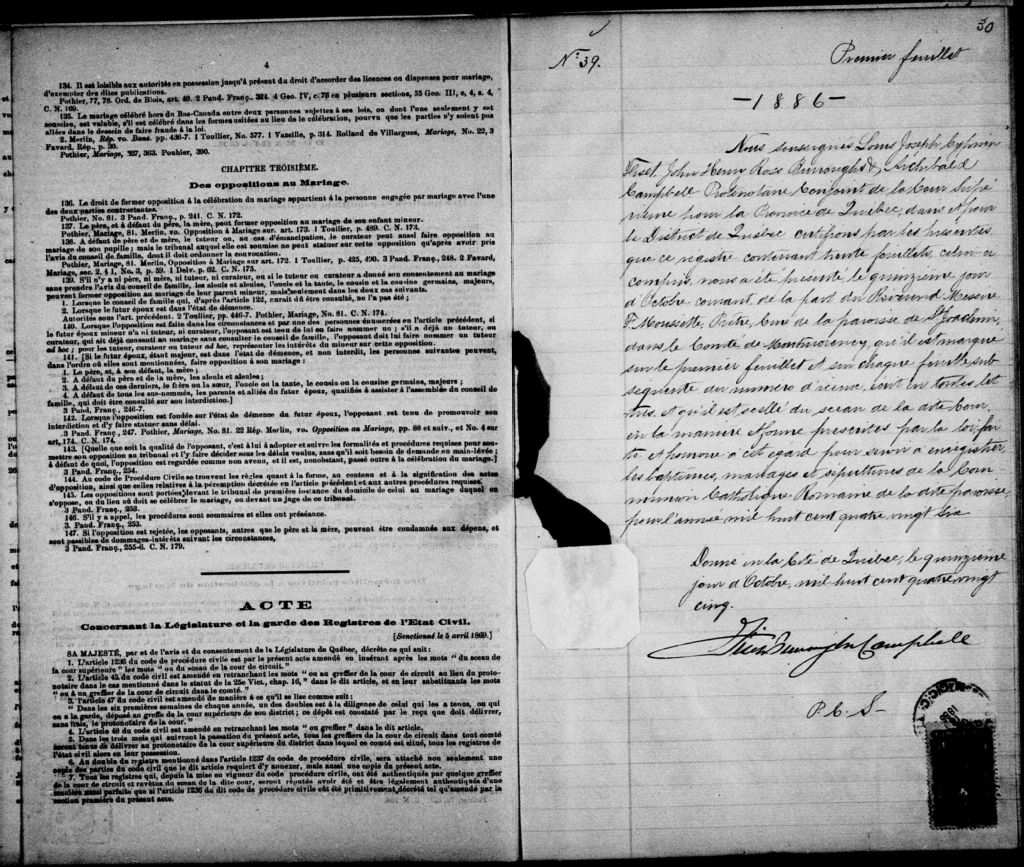 4
134. Il est loisible aux autorités en possession jusqu'à présent du droit d'accorder des licences ou dispenses pour mariage,
d'exempter des dites publications.
Pothier, 77, 78. Ord. de Blois, art. 40. 2 Pand. Franç., 324. 4 Geo. IV, c. 76 en plusieurs sections, 35 Geo. III, c. 4, s. 4.
C. N. 169.
135. Le mariage célébré hors du Bas-Canada entre deux personnes sujettes à ses lois, ou dont l'une seulement y est
soumise, est valable, s'il est célébré dans les formes usitées au lieu de la célébration, pourvu que les parties n'y soient pas
allées dans le dessein de faire fraude à la loi.
2. Merlin, Rép. vo. Bans. pp. 436-7. 1 Toullier, No. 577. 1 Vazeille, p. 314. Rolland de Villargues, Mariage, No. 22, 3
Favard, Rép., p. 30.
Pothier, Mariage, 327, 363. Pouhier, 390.
CHAPITRE TROISIÈME.
Des oppositions au Mariage.
136. Le droit de former opposition à la célébration du mariage appartient à la personne engagée par mariage avec l'une
des deux parties contractantes.
Pothier, No. 81. 3 Pand. Franç., p. 241. C. N. 172.
137. Le père, et à défaut du père, la mère, peut former opposition au mariage de son enfant mineur.
Pothier, Mariage, 81. Merlin, vo. Opposition à Mariage sur. art. 173. 1 Toullier, p. 489. C. N. 174.
138. A défaut de père et de mère, le tuteur ou, au cas d'émancipation, le curateur peut aussi faire opposition au
mariage de son pupille; mais le tribunal auquel elle est soumise ne peut statuer sur cette opposition qu'après avoir pris
l'avis du conseil de famille, dont il doit ordonner la convocation.
Pothier, Mariage, 81. Merlin, Opposition à Mariage sur art. 172. 1 Toullier, p. 425, 490. 3 Pand. Franç., 248. 2 Favard,
Mariage, sec. 2, § 1, No. 3, p. 59. 1 Delv. p. 62. C. N. 175.
139. S'il n'y a ni père, ni mère, ni tuteur, ni curateur, ou si le tuteur ou curateur a donné son consentement au mariage
sans prendre l'avis du conseil de famille, les aïeuls et aïeules, l'oncle et la tante, le cousin et la cousine germains, majeurs,
peuvent former opposition au mariage de leur parent mineur, mais seulement dans les deux cas suivants.
1. Lorsque le conseil de famille qui, d'après l'article 122, aurait dû être consulté, ne l'a pas été;
2. Lorsque le futur époux est dans l'état de démence.
Autorités sous l'art. précédent. 2 Toullier, pp. 446-7. Pothier, Mariage, No. 81. C. N. 174.
140. Lorsque l'opposition est faite dans les circonstances et par une des personnes énumérées en l'article précédent, si
le futur époux mineur n'a ni tuteur, ni curateur, l'opposant est tenu de lui en faire nommer un; s'il a déjà un tuteur, ou
curateur, qui ait déjà consenti au mariage sans consulter le conseil de famille, l'opposant doit lui faire nommer un tuteur
ad hoc; pour les tuteur, curateur ou tuteur ad hoc, représenter les intérêts du mineur sur cette opposition.
141. [Si le futur époux, étant majeur, est dans l'état de démence, et non interdit, les personnes suivantes peuvent,
dans l'ordre où elles sont mentionnées, faire opposition à son mariage:
1. Le père, et, à son défaut, la mère;
2. A défaut du père et de la mère, les aïeuls et aïeules;
3. A défaut de ces derniers, le frère ou la sœur, l'oncle ou la tante, le cousin ou la cousine germains, majeurs;
4. A défaut de tous les sus-nommés, les parents et alliés du futur époux, qualifiés à assister à l'assemblée du conseil de
famille, qui doit être consulté sur son interdiction.]
3 Pand. Franç., 246-7.
142. Lorsque l'opposition est fondée sur l'état de démence du futur époux, l'opposant est tenu de promouvoir son
interdiction et d'y faire statuer sans délai.
3 Pand. Franç., 247. Pothier, Mariage, No. 81. 22 Rép. Merlin, vo. Opposition au Mariage, pp. 88 et suiv., et No. 4 sur
art. 174. C. N. 174.
143. [Quelle que soit la qualité de l'opposant, c'est à lui à adopter et suivre les formalités et procédures requises pour sou-
mettre son opposition au tribunal et l'y faire décider sous les délais voulus, sans qu'il soit besoin de demande en main-levée;
à défaut de quoi, l'opposition est regardée comme non avenu, et il est, nonobstant, passé outre à la célébration du mariage.]
3 Pand. Franç., 254.
144. Au Code de Procédure Civile se trouvent les règles quant à la forme, au contenu et à la signification des actes
d'opposition, ainsi que celles relatives à la péremption décrétée en l'article précédent et aux autres procédures requises.
145. Les oppositions sont portées devant le tribunal de première instance du domicile de celui au mariage duquel on
s'oppose, ou du lieu où doit se célébrer le mariage, ou devant un juge de ce tribunal.
3 Pand. Franç., 253.
146. S'il y a appel, les procédures sont sommaires et elles ont préséance.
3. Pand. Franç., 253.
147. Si l'opposition est rejetée, les opposants, autres que le père et la mère, peuvent être condamnés aux dépens, et
sont passibles de dommages-intérêts suivant les circonstances,
3 Pand. Franç., 255-6. C. N. 179.
ACTE
Concernant la Législature et la garde des Registres de l'Etat Civil.
[Sanctionné le 5 avril 1869.]
SA MAJESTÉ, par et de l'avis et du consentement de la Législature de Québec, décrète ce qui suit:
1. L'article 1236 du code de procédure civile est par le présent acte amendé en insérant après les mots " du sceau de
la cour supérieure " les mots " ou du sceau de la cour de circuit."
2. L'article 45 du code civil est amendé en retranchant les mots " ou au greffier de la cour de circuit au lieu du proto-
notaire dans le cas mentionné dans le statut de la 25e Vict., chap. 16, " dans le dit article, et en leur substituant les mots
" ou à un greffier de la cour de circuit dans le comté."
3. l'article 47 du code civil est amendé de manière à ce qu'il se lise comme suit:
" Dans les six premières semaines de chaque année, un des doubles est à la diligence de celui qui les a tenus, ou qui
en a la garde, déposé au greffe de la cour supérieure de son district; ce dépôt est constaté par le reçu que doit délivrer,
sans frais, le protonotaire de la cour."
4. L'article 48 du code civil est amendé en retranchant les mots " ou greffier " dans le dit article.
5. Dans les trois mois qui suivront la passation du présent acte, tous les greffiers de la cour de circuit dans tout comté
seront tenus de délivrer au protonotaire de la cour supérieure du district dans lequel ce comté est situé, tous les registres de
l'état civil alors en leur possession.
6. Au double du registre mentionné dans l'article 1237 du code de procédure civile, sera attaché non seulement une
copie des parties du code civil que le dit article requiert d'y annexer, mais aussi une copie du présent acte.
7. Tous les registres qui, depuis la mise en vigueur du code procédure civile, ont été authentiqués par quelque greffier
de la cour de circuit et revêtus du sceau de la dite cour, seront réputés avoir été et être légalement authentiqués d'une
manière aussi parfaite que si l'article 1236 du dit code de procédure civile eût été primitivement décrété tel qu'amendé par la
section première du présent acte.
30
No. 39.
Premier feuillet
— 1886 —
Nous soussignés Louis Joseph Cyprien
Fiset, John Henry Ross Burroughs &, Archibald
Campbell Protonotaire Conjoint de la Cour Supé
rieure pour la Province de Québec, dans et pour
le District de Québec certifions par les présentes
que ce registre contenant trente feuillets, celui-ci
compris, nous a été présenté le quinzième jour
d'Octobre courant, de la part du Révérend Messire
F. Moussette, Prêtre, Curé de la paroisse de St Joachim,
dans le Comté de Montmorency, qu'il est marqué
sur le premier feuillet et sur chaque feuille sub-
séquente du numéro d'icelui, écrit en toutes let
tres, et qu'il est scellé du sceau de la dite Cour,
en la manière et forme prescrites par la loi, fai
te et pourvue à cet égard pour servir à enregistrer
les baptêmes, mariages et sépultures de la Com
munion Catholique Romaine de la dite paroisse,
pour l'année mil huit cent quatre vingt six
Donné en la Cité de Québec, le quinzième
jour d'Octobre, mil huit cent quatre vingt
cinq.
Fiset Burroughs Campbell
P. C. S.